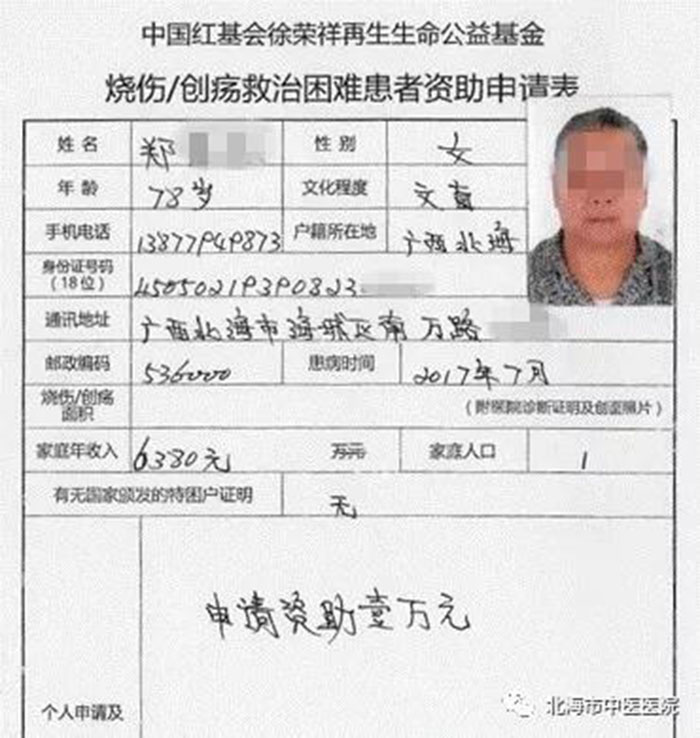 中国红基会徐荣祥再生生命公益基金
烧伤/创疡救治困难患者资助申请表
姓 名 郑 性 别 女
年 龄 78岁 文化程度 文盲
手机电话 13877949873 户籍所在地 广西北海
身份证号码（18位） 45050219390823
通讯地址 广西北海市海城区南万路
邮政编码 536000 患病时间 2017年7月
烧伤/创疡面积 （附医院诊断证明及创面照片）
家庭年收入 6380元 万元 家庭人口 1
有无国家颁发的特困户证明 无
申请资助壹万元
个人申请及
北海市中医医院